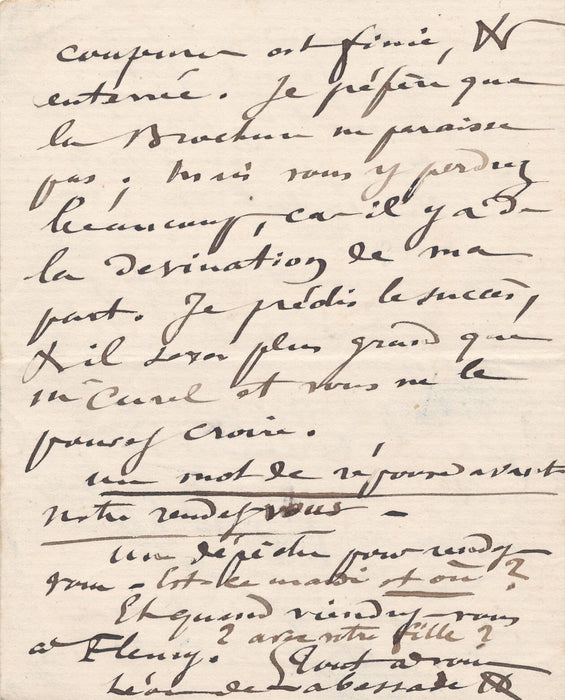 coupure est finie, &
enterrée. Je préfère que
la Brochure ne paraisse
pas ; mais vous y perdrez
beaucoup, car il y a de
la devination de ma
part. Je prédis le succès,
& il sera plus grand que
Mr Curel et vous ne le
pouvez croire.
un mot de réponse avant
notre rendez vous -
un dépêche pour rendez
vous - Est-ce mardi et où ?
Et quand viendrez-vous
? avec votre fille ?
a Fleury. Tout a vous
Léon de Labessade